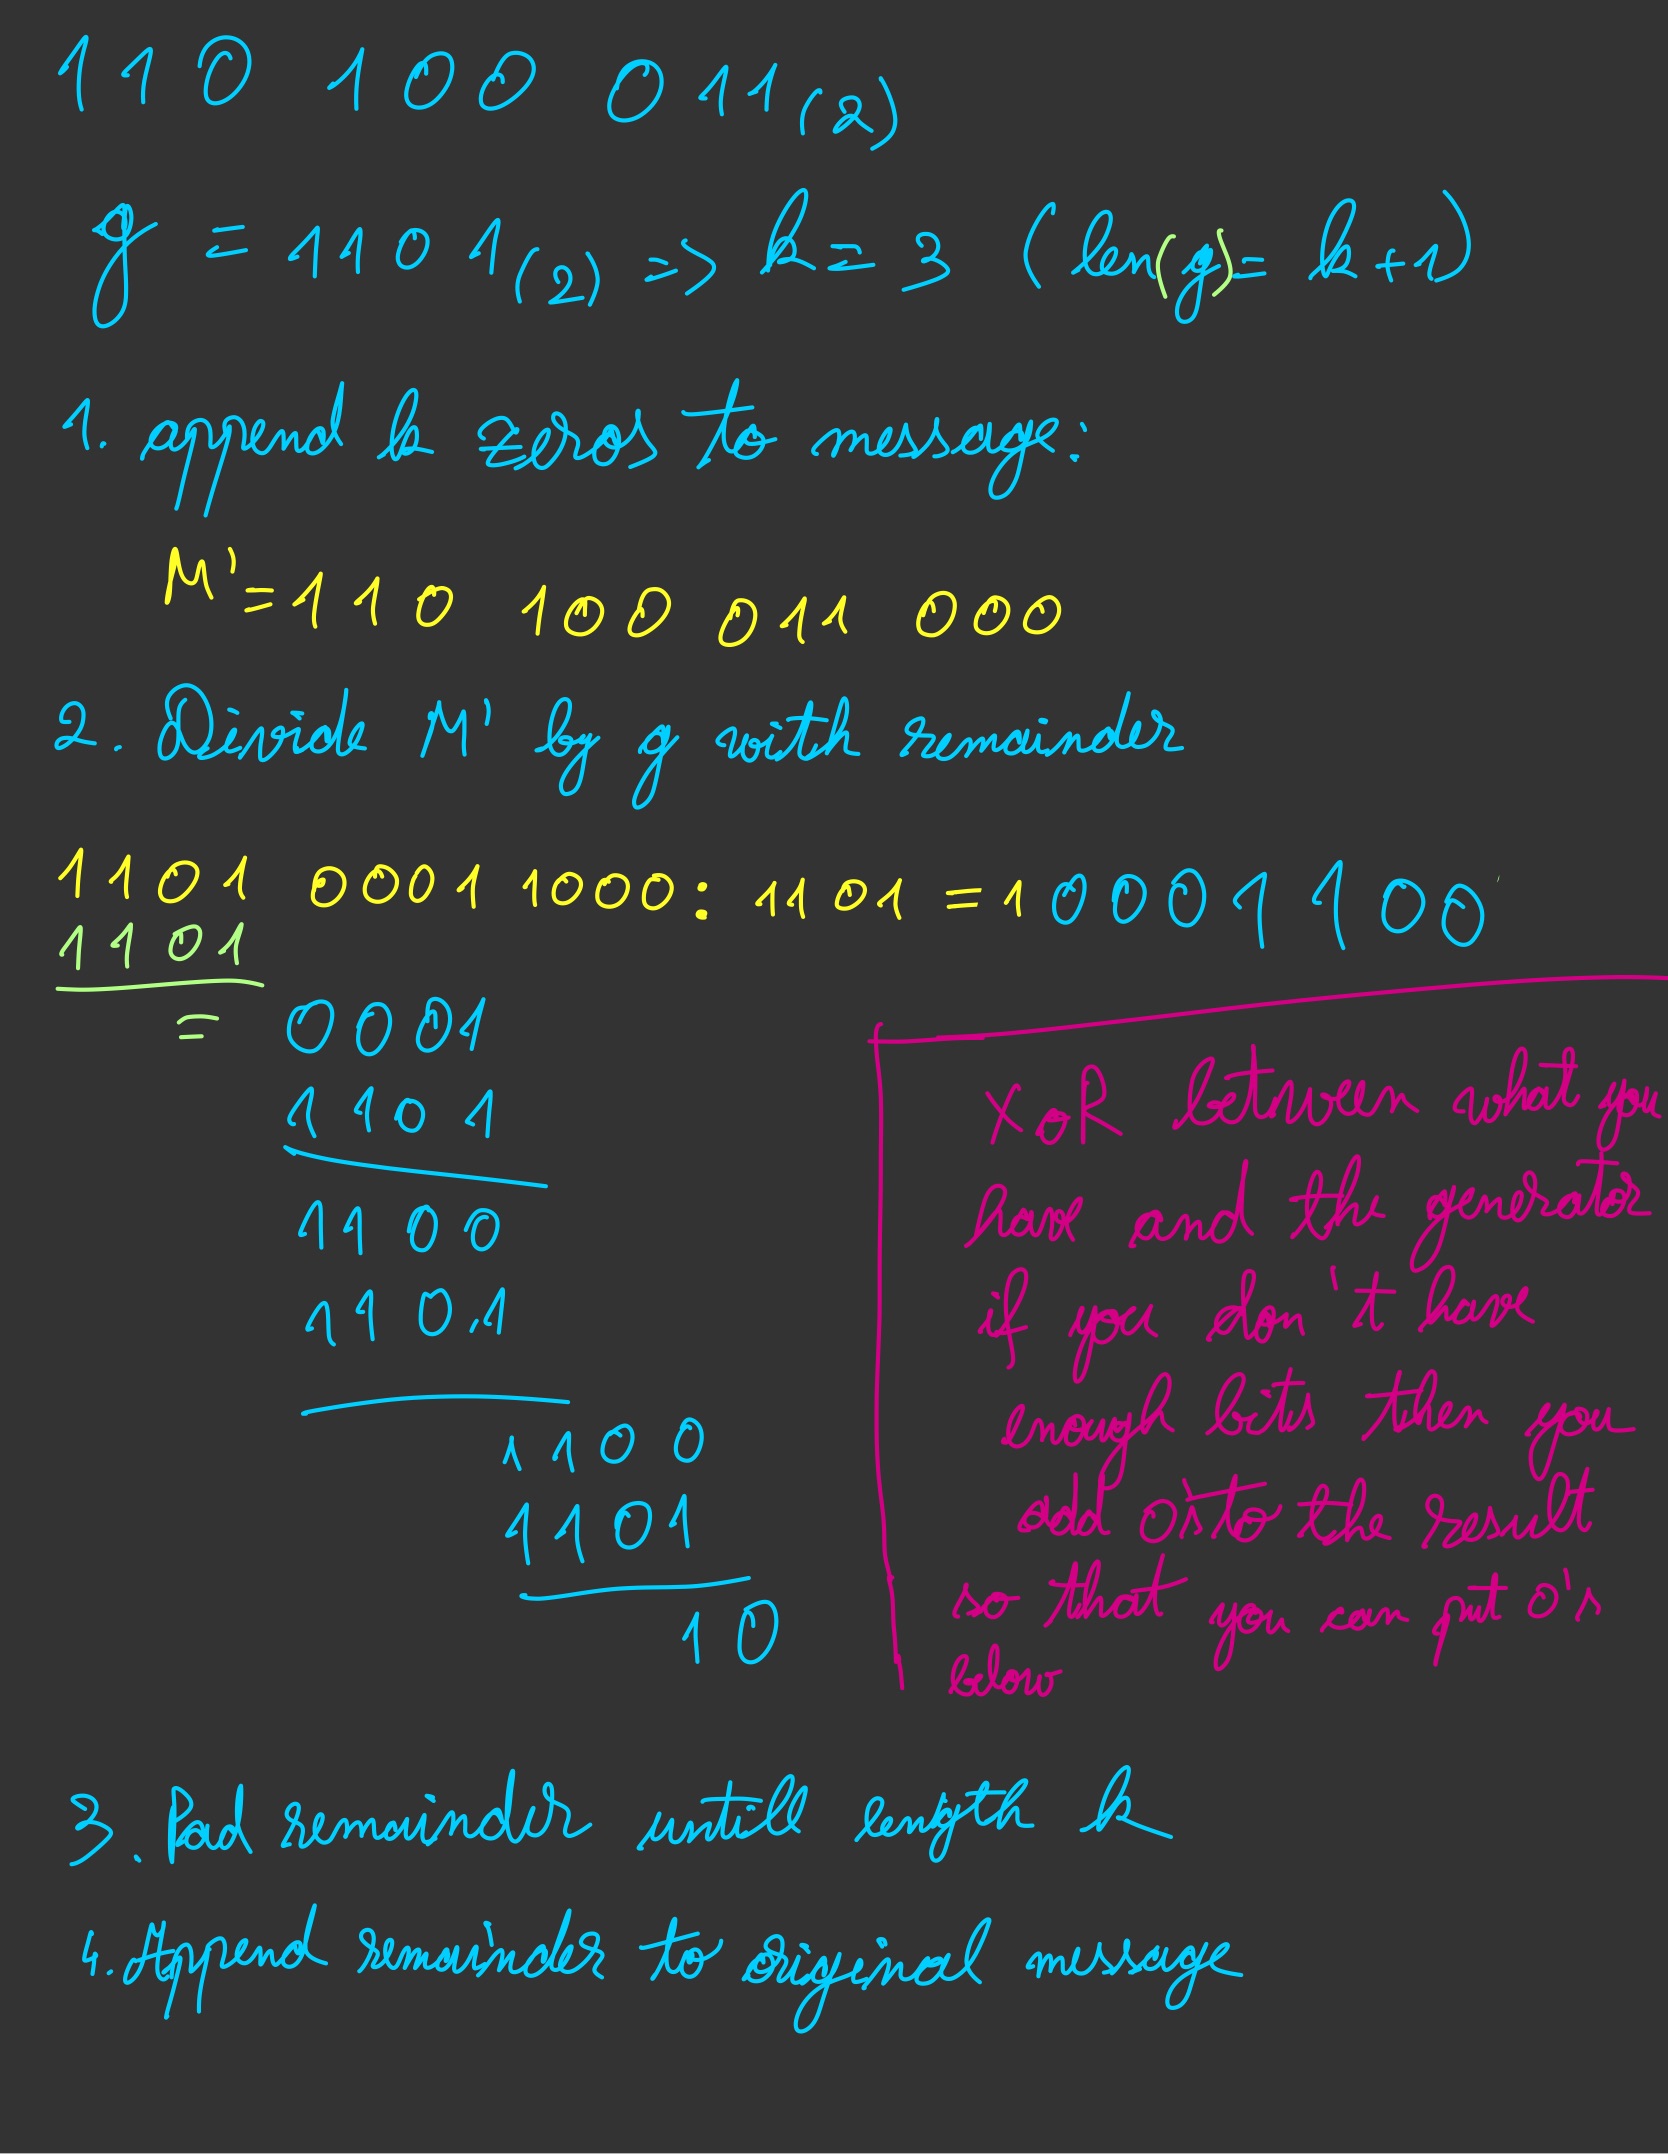 110 100 011(2)
g = 1101(2) => k = 3 (len(g) = k+1)
1. append k zeros to message:
M' = 110 100 011 000
2. Divide M' by g with remainder
1101 0001 1000 : 1101 = 1 0001100
1101
= 0001
1101
1100
1101
1100
1101
10
XOR between what you
have and the generator
if you don't have
enough bits then you
add 0's to the result
so that you can put 0's
below
3. Pad remainder untill length k
4. Append remainder to original message